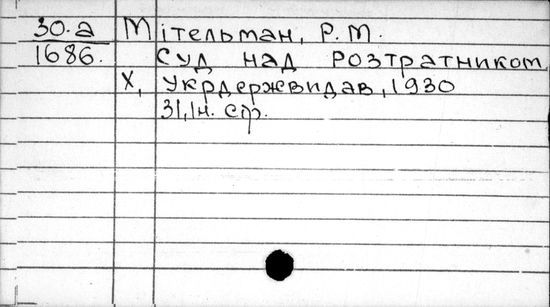 30.а Мітельман, Р. М.
1686. Суд над розтратником,
Х, Укрдержвидав, 1930
31, Ін. ср.